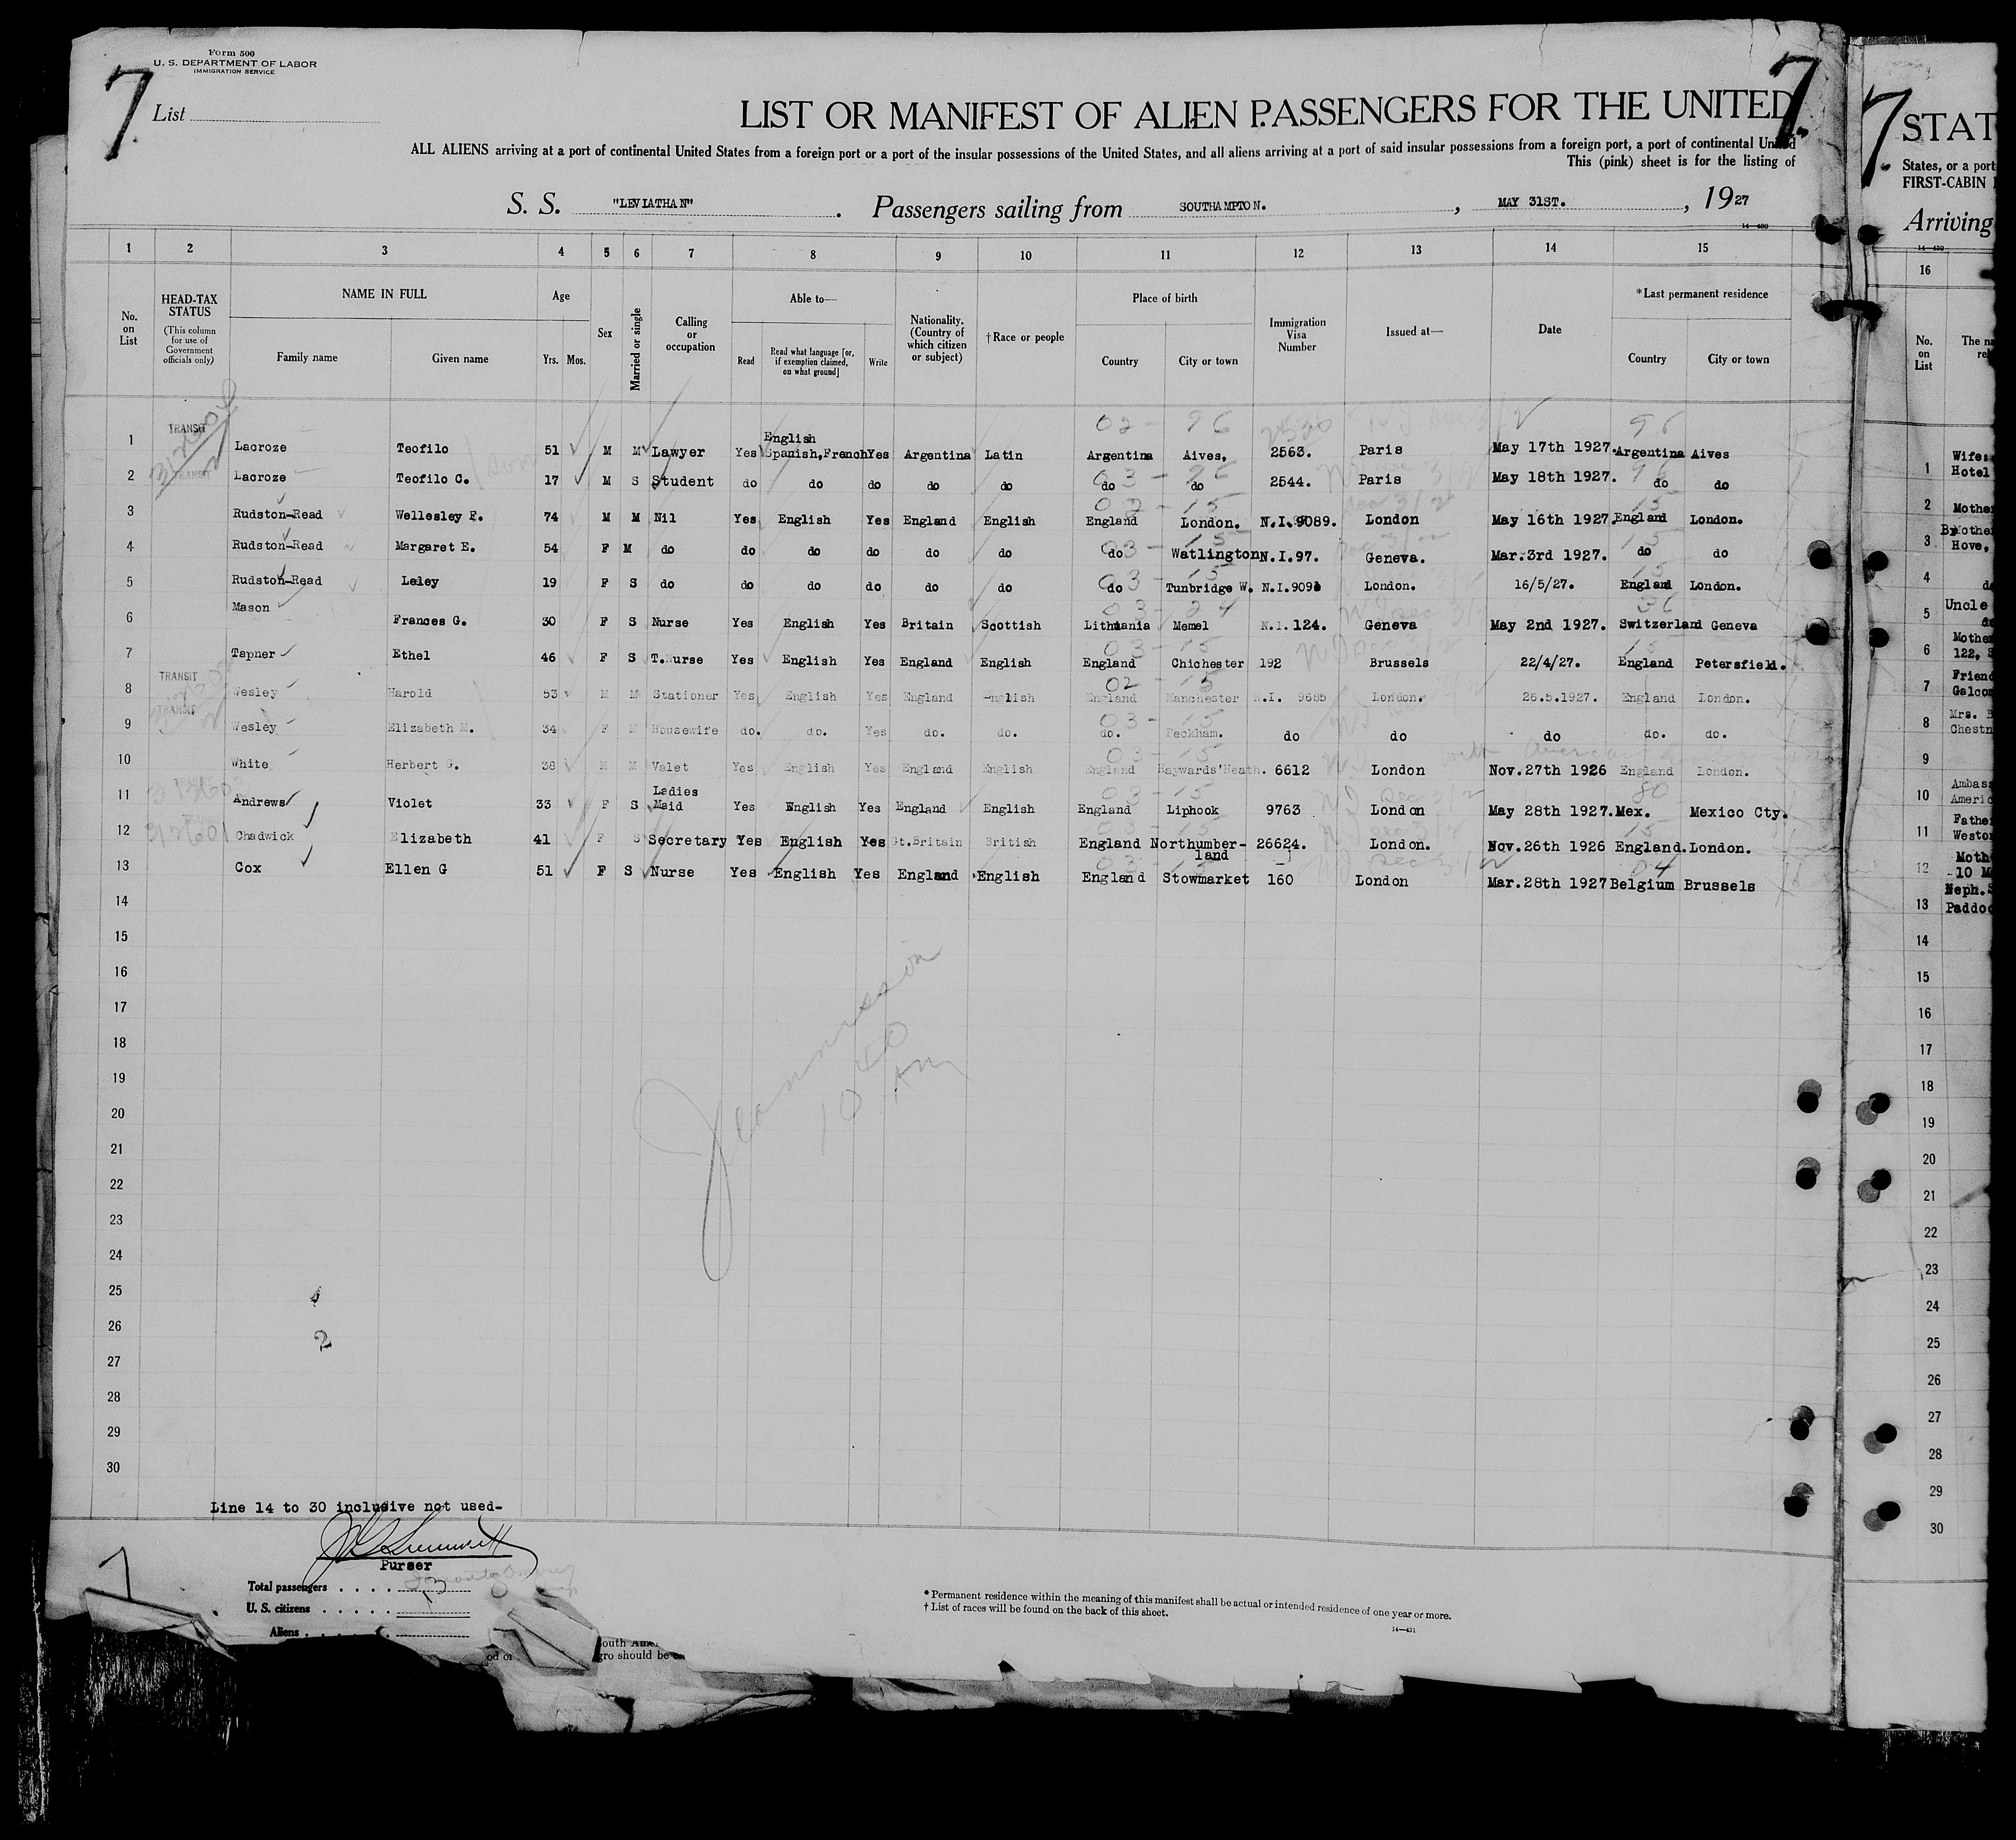 Form 500
U. S. DEPARTMENT OF LABOR
IMMIGRATION SERVICE
7 List 7
LIST OR MANIFEST OF ALIEN PASSENGERS FOR THE UNITED
ALL ALIENS arriving at a port of continental United States from a foreign port or a port of the insular possessions of the United States, and all aliens arriving at a port of said insular possessions from a foreign port, a port of continental United
This (pink) sheet is for the listing of
S. S. "LEVIATHAN". Passengers sailing from SOUTHAMPTON. , MAY 31ST. , 1927
14—430
1 2 3 4 5 6 7 8 9 10 11 12 13 14 15
No. on List
HEAD-TAX STATUS
(This column for use of Government officials only)
NAME IN FULL
Family name Given name
Age
Yrs. Mos.
Sex
Married or single
Calling or occupation
Able to—
Read
Read what language [or, if exemption claimed, on what ground]
Write
Nationality. (Country of which citizen or subject)
†Race or people
Place of birth
Country City or town
Immigration Visa Number
Issued at—
Date
*Last permanent residence
Country City or town
1 TRANSIT Lacroze Teofilo 51 M M Lawyer Yes English Spanish,French Yes Argentina Latin Argentina Aives, 2563. Paris May 17th 1927. Argentina Aives
2 TRANSIT Lacroze Teofilo C. 17 M S Student do do do do do do do 2544. Paris May 18th 1927. do do
3 Rudston-Read Wellesley F. 74 M M Nil Yes English Yes England English England London. N.I.9089. London May 16th 1927. England London.
4 Rudston-Read Margaret E. 54 F M do do do do do do do Watlington N.I.97. Geneva. Mar.3rd 1927. do do
5 Rudston-Read Lesley 19 F S do do do do do do do Tunbridge W. N.I.909 London. 16/5/27. England London.
6 Mason Frances G. 30 F S Nurse Yes English Yes Britain Scottish Lithuania Memel N.I.124. Geneva May 2nd 1927. Switzerland Geneva
7 Tapner Ethel 46 F S T.Nurse Yes English Yes England English England Chichester 192 Brussels 22/4/27. England Petersfield.
8 TRANSIT Wesley Harold 53 M M Stationer Yes English Yes England English England Manchester N.I. 9685 London. 26.5.1927. England London.
9 TRANSIT Wesley Elizabeth M. 34 F M Housewife do. do. Yes do. do. do. Peckham. do do do do. do.
10 White Herbert G. 38 M M Valet Yes English Yes England English England Haywards'Heath. 6612 London Nov.27th 1926 England London.
11 Andrews Violet 33 F S Ladies Maid Yes English Yes England English England Liphook 9763 London May 28th 1927. Mex. Mexico Cty.
12 Chadwick Elizabeth 41 F S Secretary Yes English Yes Gt.Britain British England Northumber-land 26624. London. Nov.26th 1926 England. London.
13 Cox Ellen G 51 F S Nurse Yes English Yes England English England Stowmarket 160 London Mar.28th 1927 Belgium Brussels
14
15
16
17
18
19
20
21
22
23
24
25
26
27
28
29
30
10 40 Am
2
Line 14 to 30 inclusive not used-
Purser
Total passengers . . . . 13
U. S. citizens . . . . .
Aliens . . . . .
* Permanent residence within the meaning of this manifest shall be actual or intended residence of one year or more.
† List of races will be found on the back of this sheet.
14—431
gro should be
7 STAT
States, or a port
FIRST-CABIN
Arriving
14—430
16
No. on List
The na
rel
1 Wife: Hotel
2 Mother
3 Hove,
4 do
5 Uncle
6 Mother 122,
7 Friend
8 Mrs. B Chestn
9
10 Ambas Americ
11 Father Weston
12 Moth 10 M
13 Neph. Paddoc
14
15
16
17
18
19
20
21
22
23
24
25
26
27
28
29
30